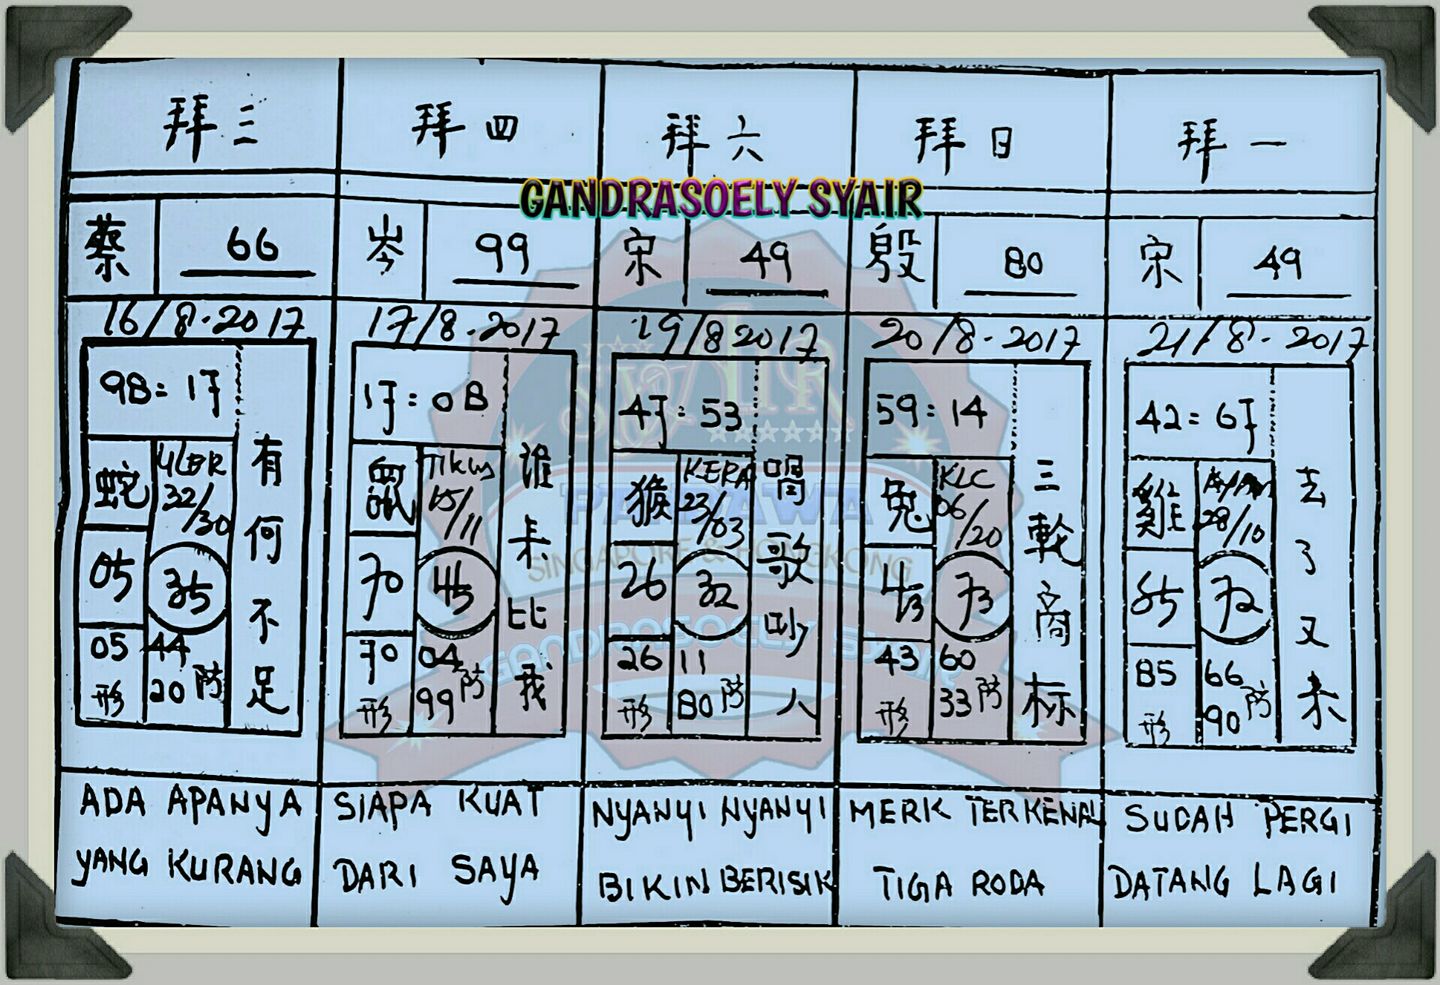 拜三
拜四
拜六
拜日
拜一
GANDRASOELY SYAIR
蔡 66
岑 99
宋 49
殷 80
宋 49
16/8-2017
17/8-2017
19/8 2017
20/8-2017
21/8-2017
98=
蛇
ULER
32/30
05
35
05
44
形
20 防
有何不足
08
鼠
Tikus
15/11
70
45
70
04
形
99 防
谁
比我
53
猴
KERA
23/03
26
32
26
11
形
80 防
唱歌吵人
59=14
兔
KLC
06/20
43
73
43
60
形
33 防
三輪商标
42=
雞
28/10
85
72
85
66
形
90 防
去了又来
ADA APANYA
YANG KURANG
SIAPA KUAT
DARI SAYA
NYANYI NYANYI
BIKIN BERISIK
MERK TERKENAL
TIGA RODA
SUDAH PERGI
DATANG LAGI
SYAIR
PANDAWA
SINGAPORE & HONGKONG
GANDRASOELY SYAIR